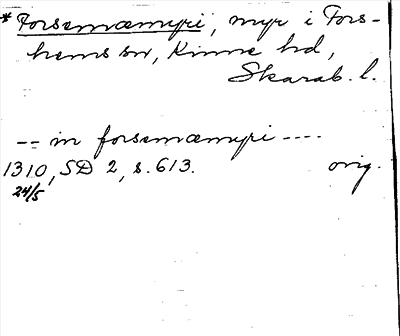 *Forsemæmyri, myr i Fors-
hems sn, Kinne hd,
Skarab. l.
-- in forsemæmyri ----
1310, SD 2, s. 613. orig.
24/5